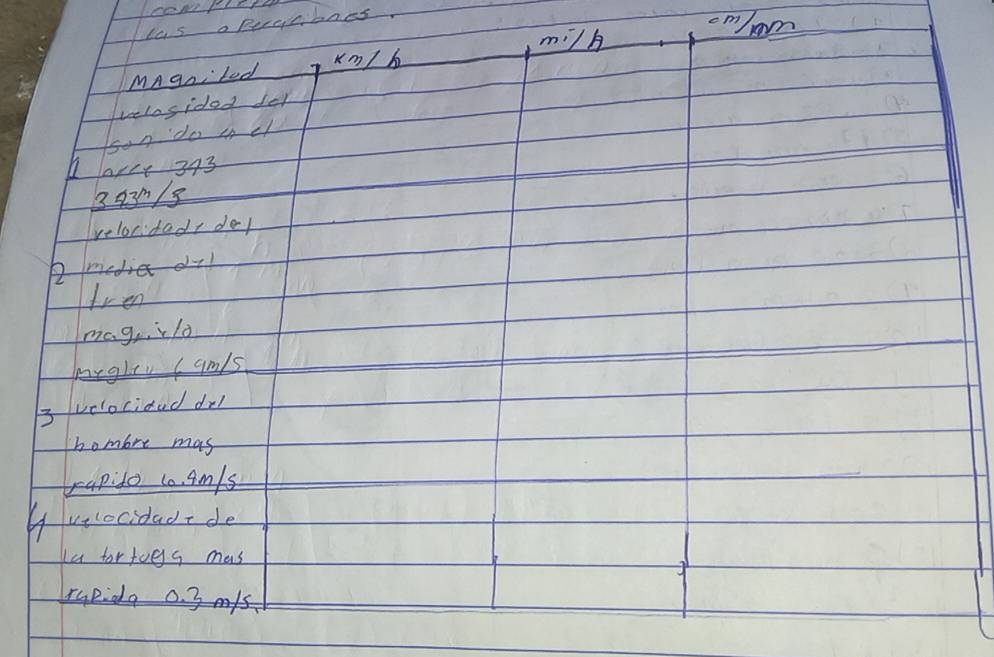 las operaciones.
MAgnitud km/h mi/h cm/mm
velosidad del
sonido en el
1 aire 343
343m/s
velocidade del
2 media del
tren
3 velocidad del
hombre mas
rapido
4 velocidade de
la tortuga mas
rapida 0.3 m/s.